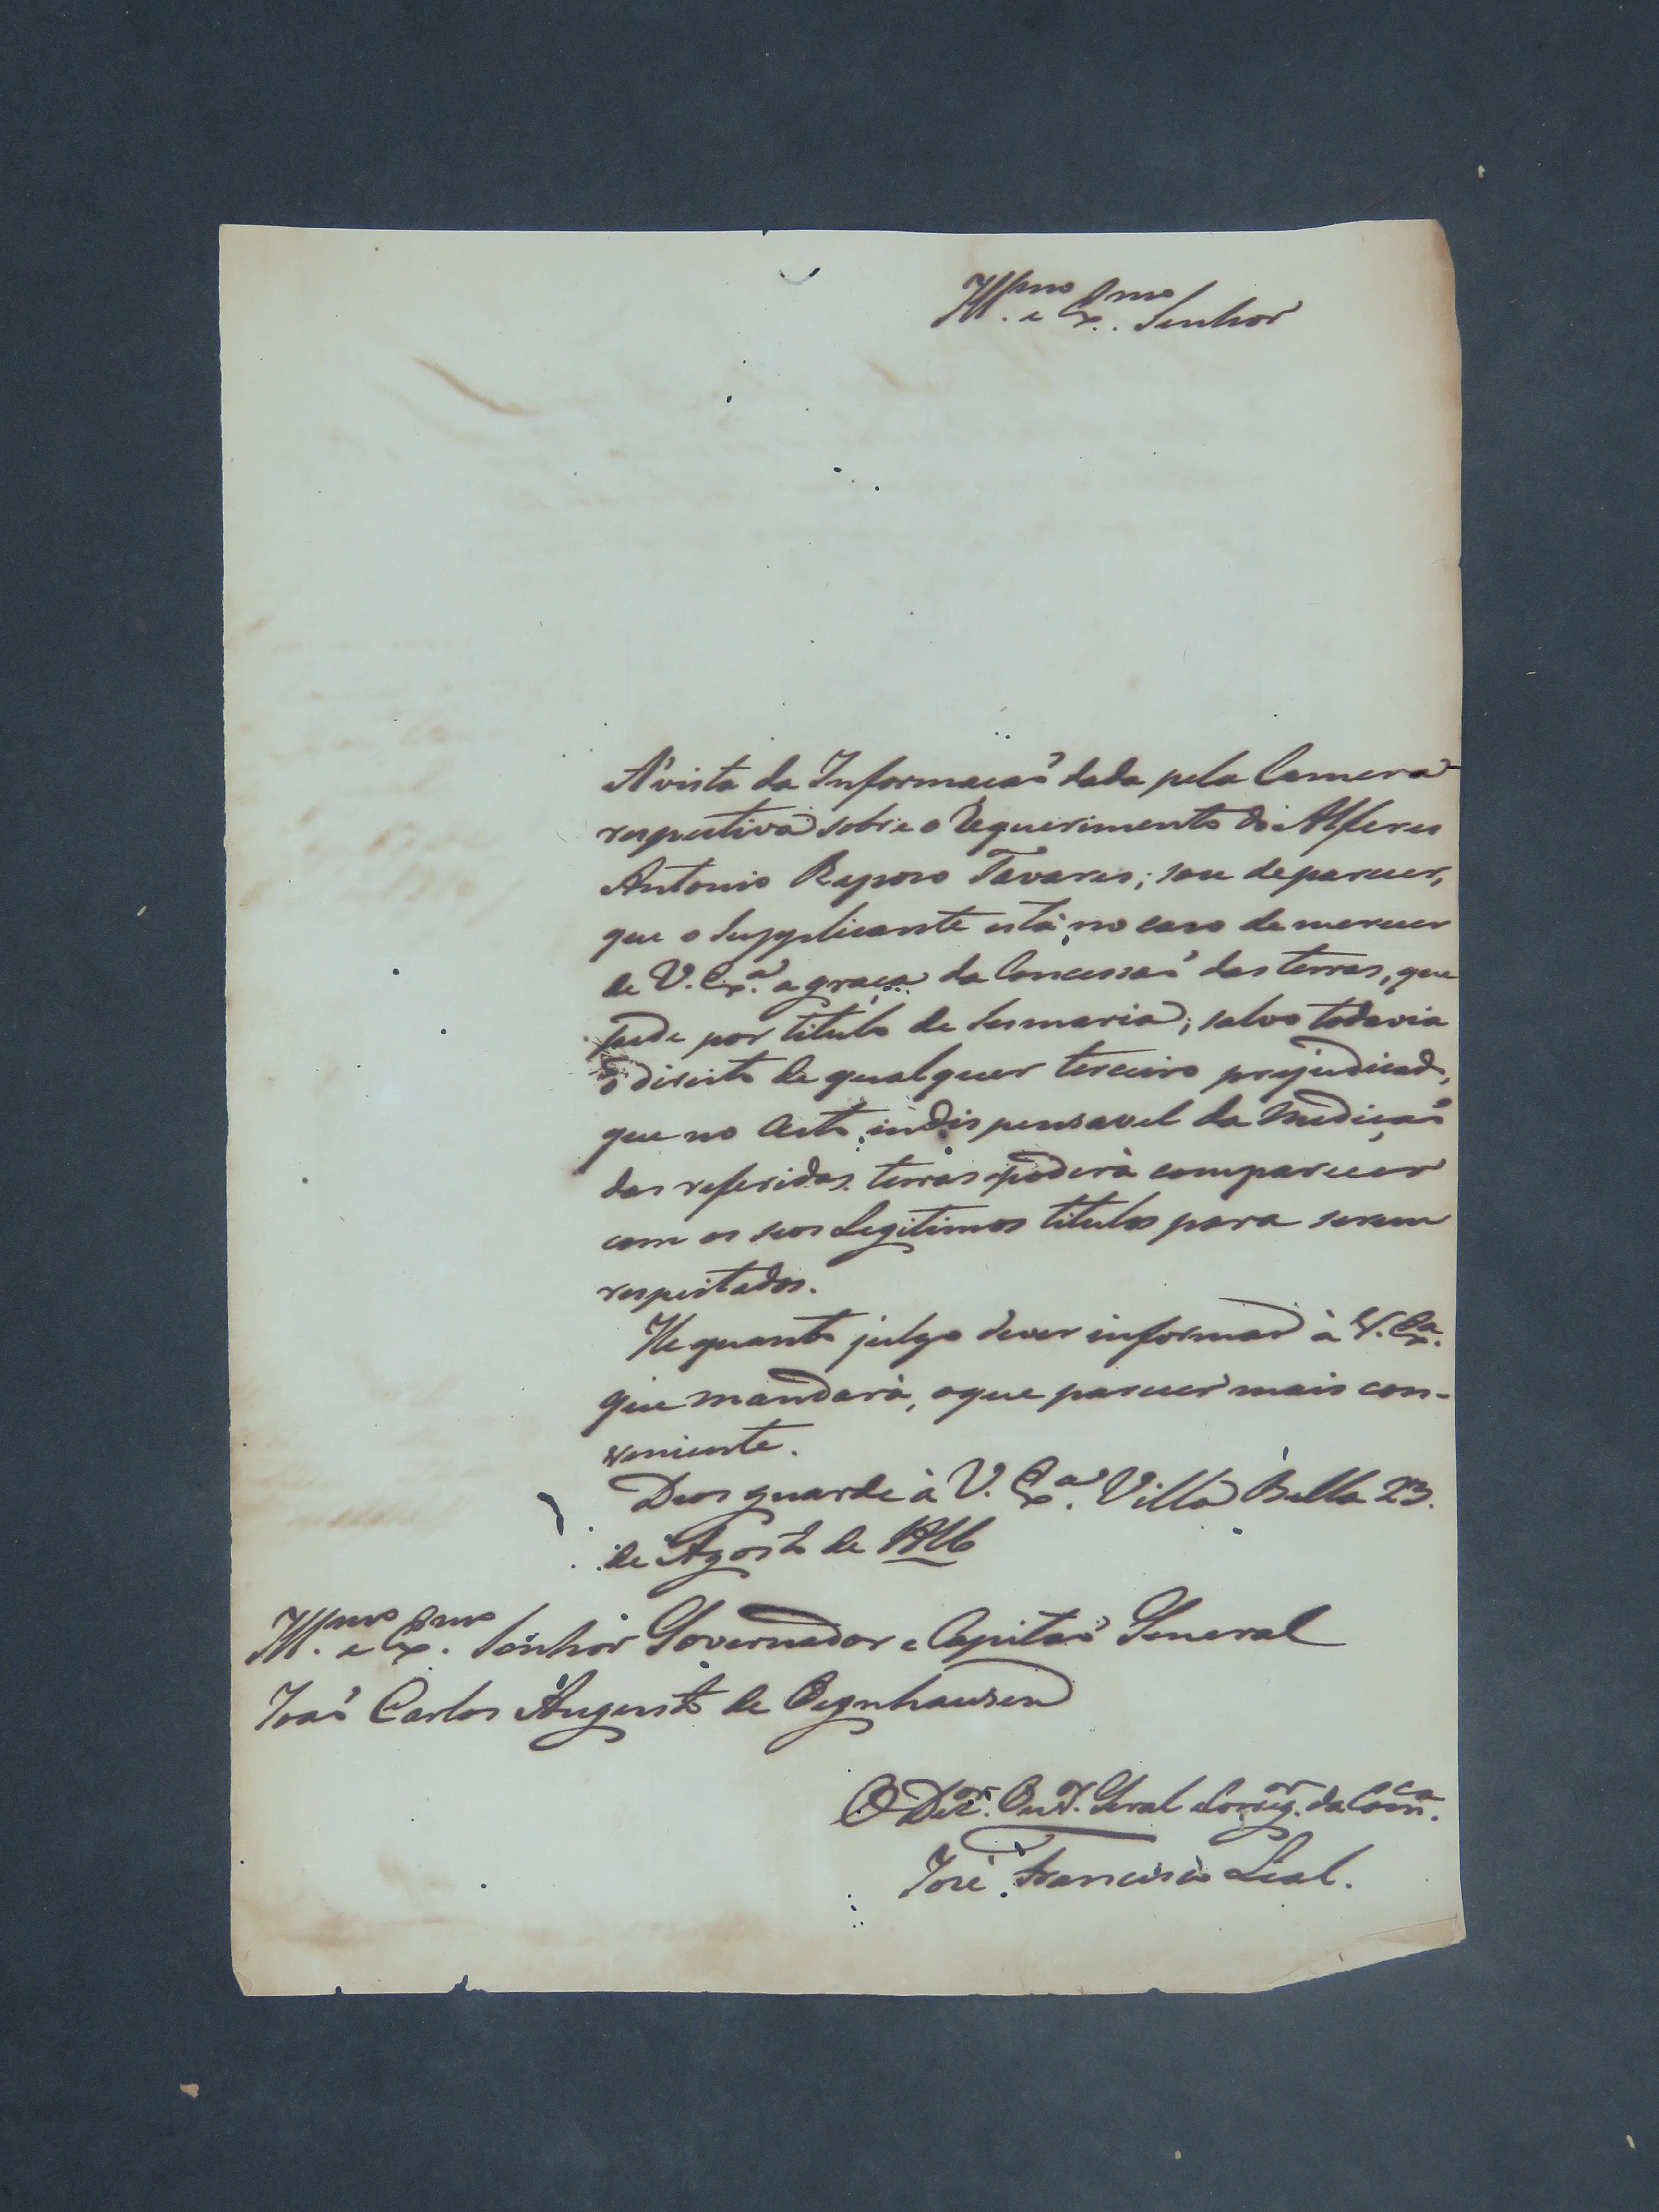 Ill.mo e Ex.mo Senhor
A' vista da Informaçaõ dada pela Camera
respectiva sobre o Requerimento do Alferes
Antonio Raposo Tavares; sou de parecer,
que o Supplicante está no caso de merecer
de V. Ex.a a graça da Concessaõ das terras, que
pede por titulo de Sesmaria; salvo todavia
o direito de qualquer terceiro prejudicado,
que no acto indispensavel da Mediçaõ
das referidas terras poderà comparecer
com os seos Legitimos titulos para serem
respeitados.
He quanto julgo dever informar à V. Ex.a
que mandarà, o que parecer mais con-
veniente.
Deos guarde à V. Ex.a Villa Bella 23.
de Agosto de 1816
Ill.mo e Ex.mo Senhor Governador e Capitaõ General
Joaõ Carlos Augusto de Oeynhausen
O Dez.or Ouv.or Geral e Correg.or da Com.ca
José Francisco Leal.